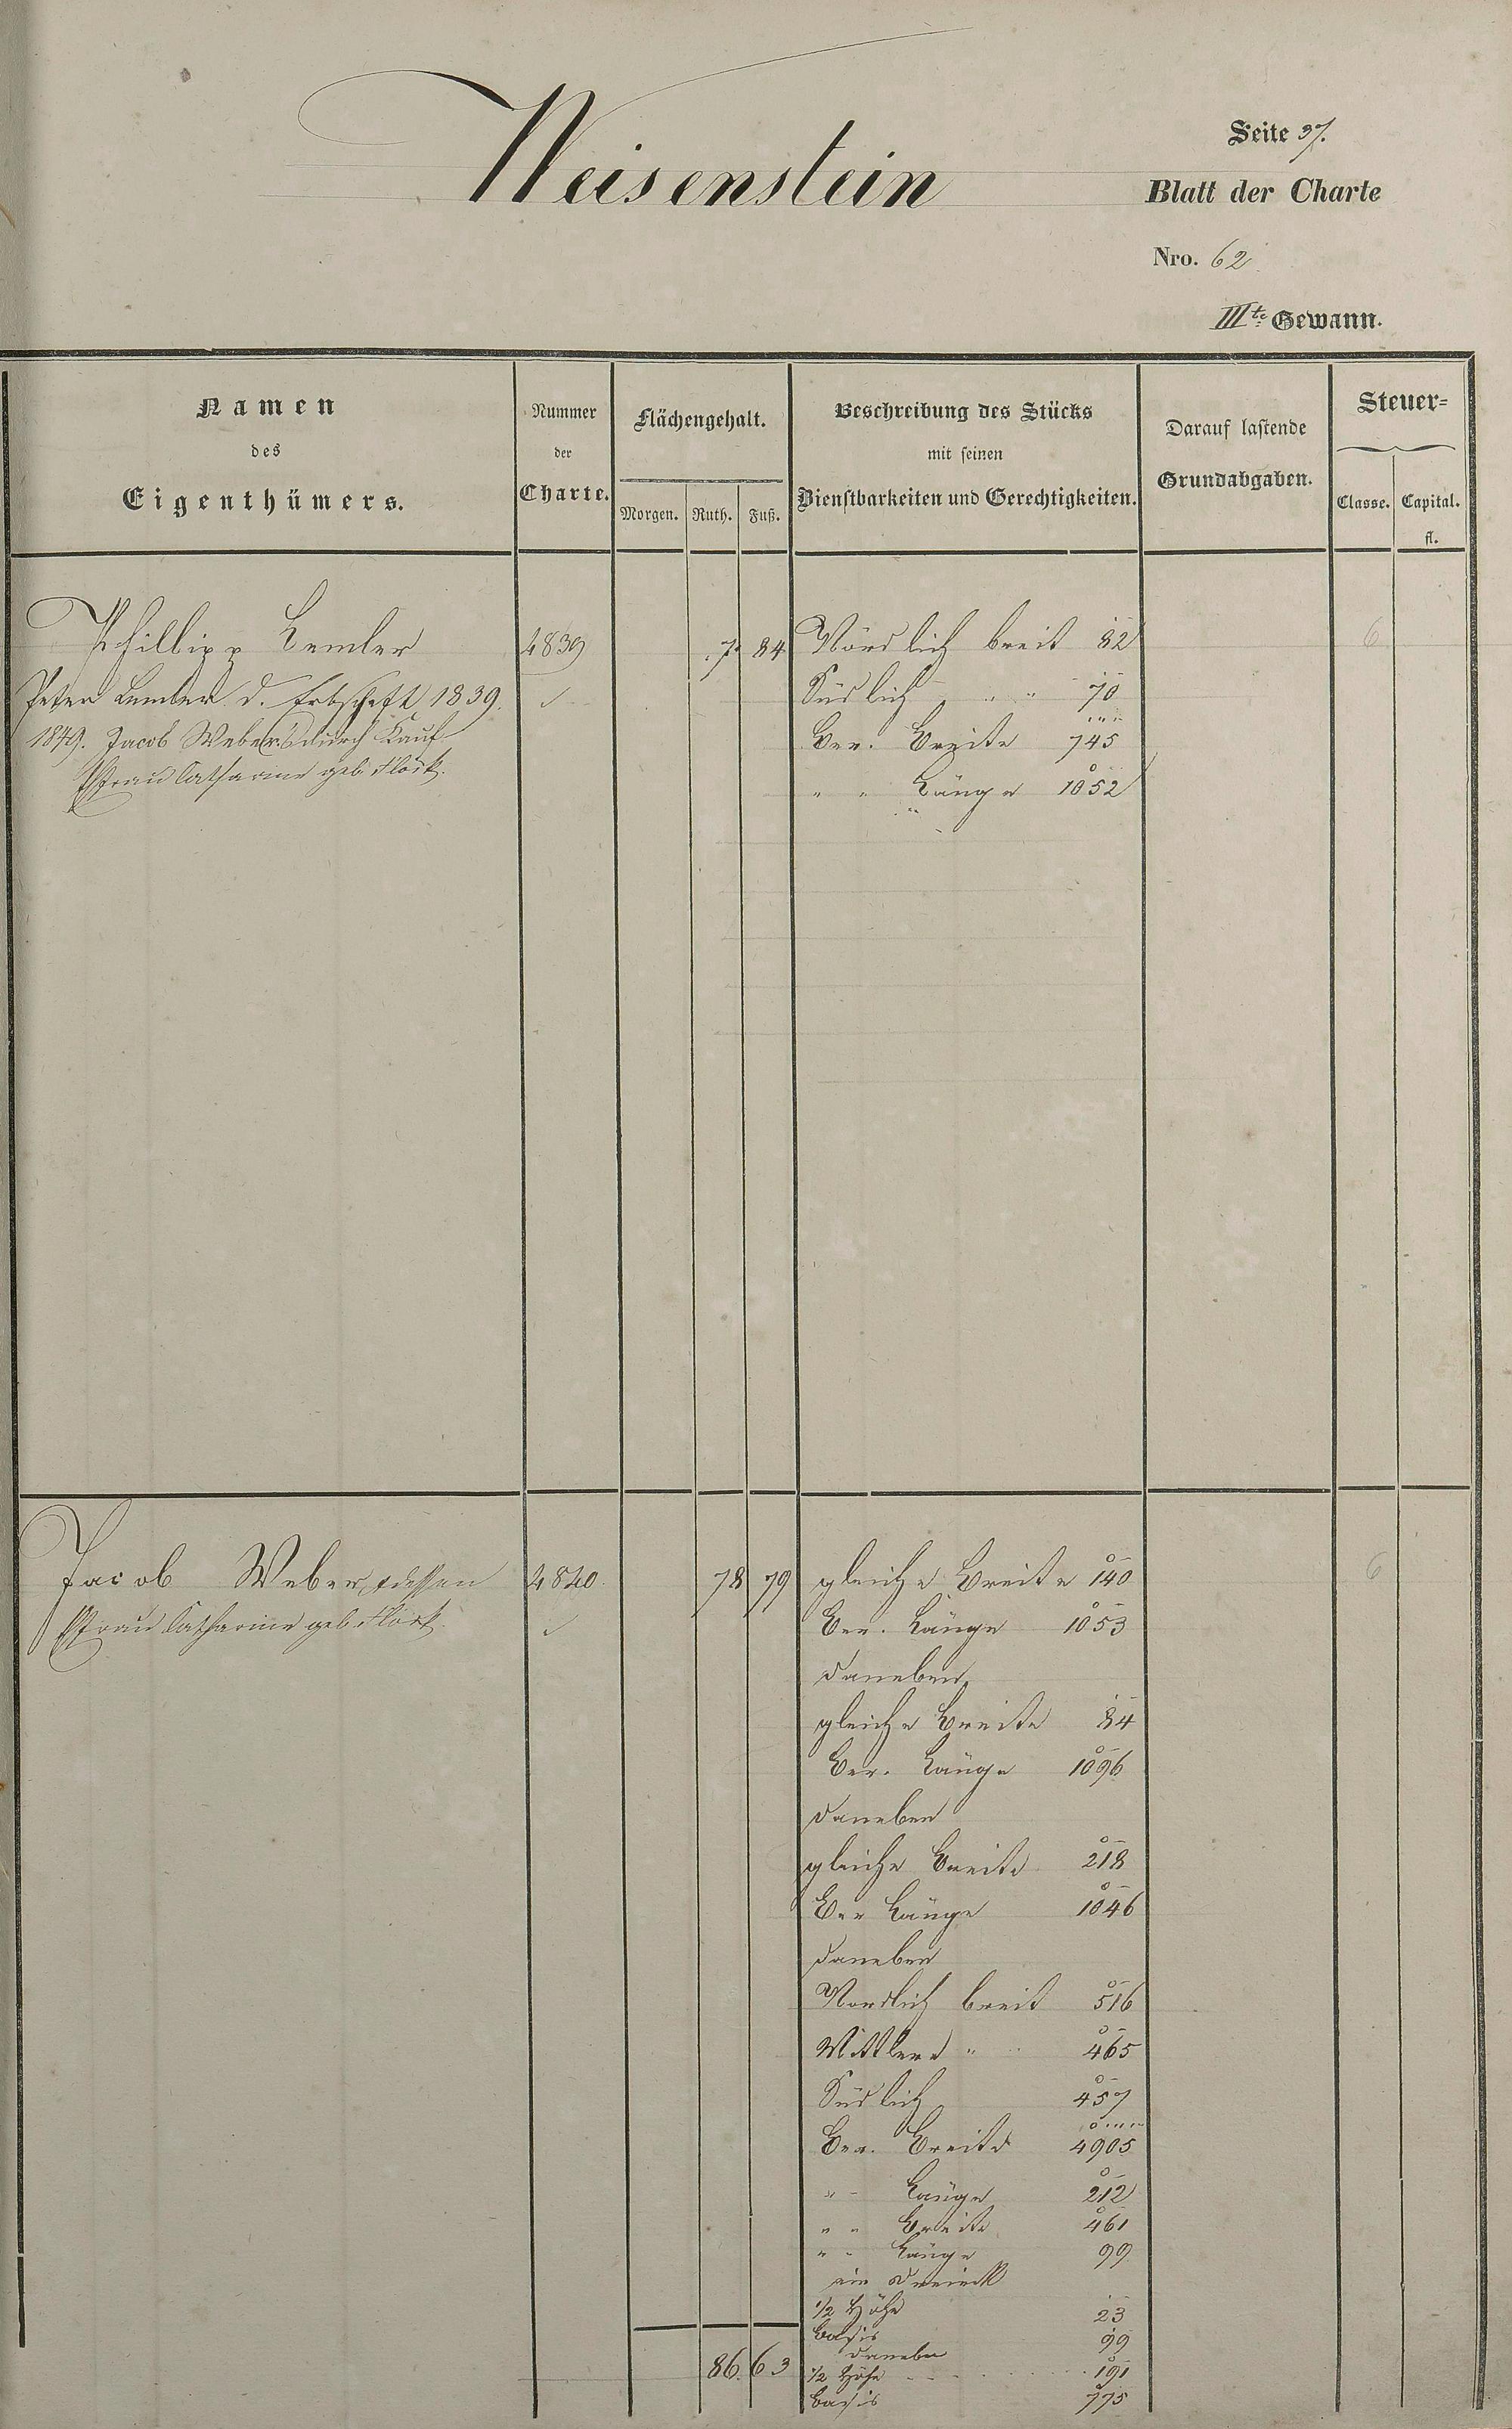 Weisenstein
Seite 37.
Blatt der Charte
Nro. 62
IIIte Gewann.
Namen
des
Eigenthümers.
Nummer
der
Charte.
Flächengehalt.
Morgen. Ruth. Fuß.
Beschreibung des Stücks
mit seinen
Dienstbarkeiten und Gerechtigkeiten.
Darauf lastende
Grundabgaben.
Steuer=
Classe. Capital.
fl.
Phillipp Lemler 4839 7 84 Nördlich breit 82 6
Peter Lemler d. Erbschaft 1839. Südlich " " 70
1849. Jacob Weber durch Kauf Ber. Breite 745
Frau Catharine geb. Flöck. " " Länge 1052
Jacob Weber, dessen 4840. 78 79 gleiche Breite 140 6
Frau Catharine geb. Flöck. Ber. Länge 1053
daneben
gleiche Breite 84
Ber. Länge 1096
daneben
gleiche Breite 218
Ber Länge 1046
daneben
Nordlich breit 516
Mittlere " " 465
Südlich 457
Ber. Breite 4905
" " Länge 212
" " Breite 461
" " Länge 99
ein Dreieck
1/2 Höhe 23
Basis 99
daneben
86. 63 1/2 Höhe 191
Basis 775